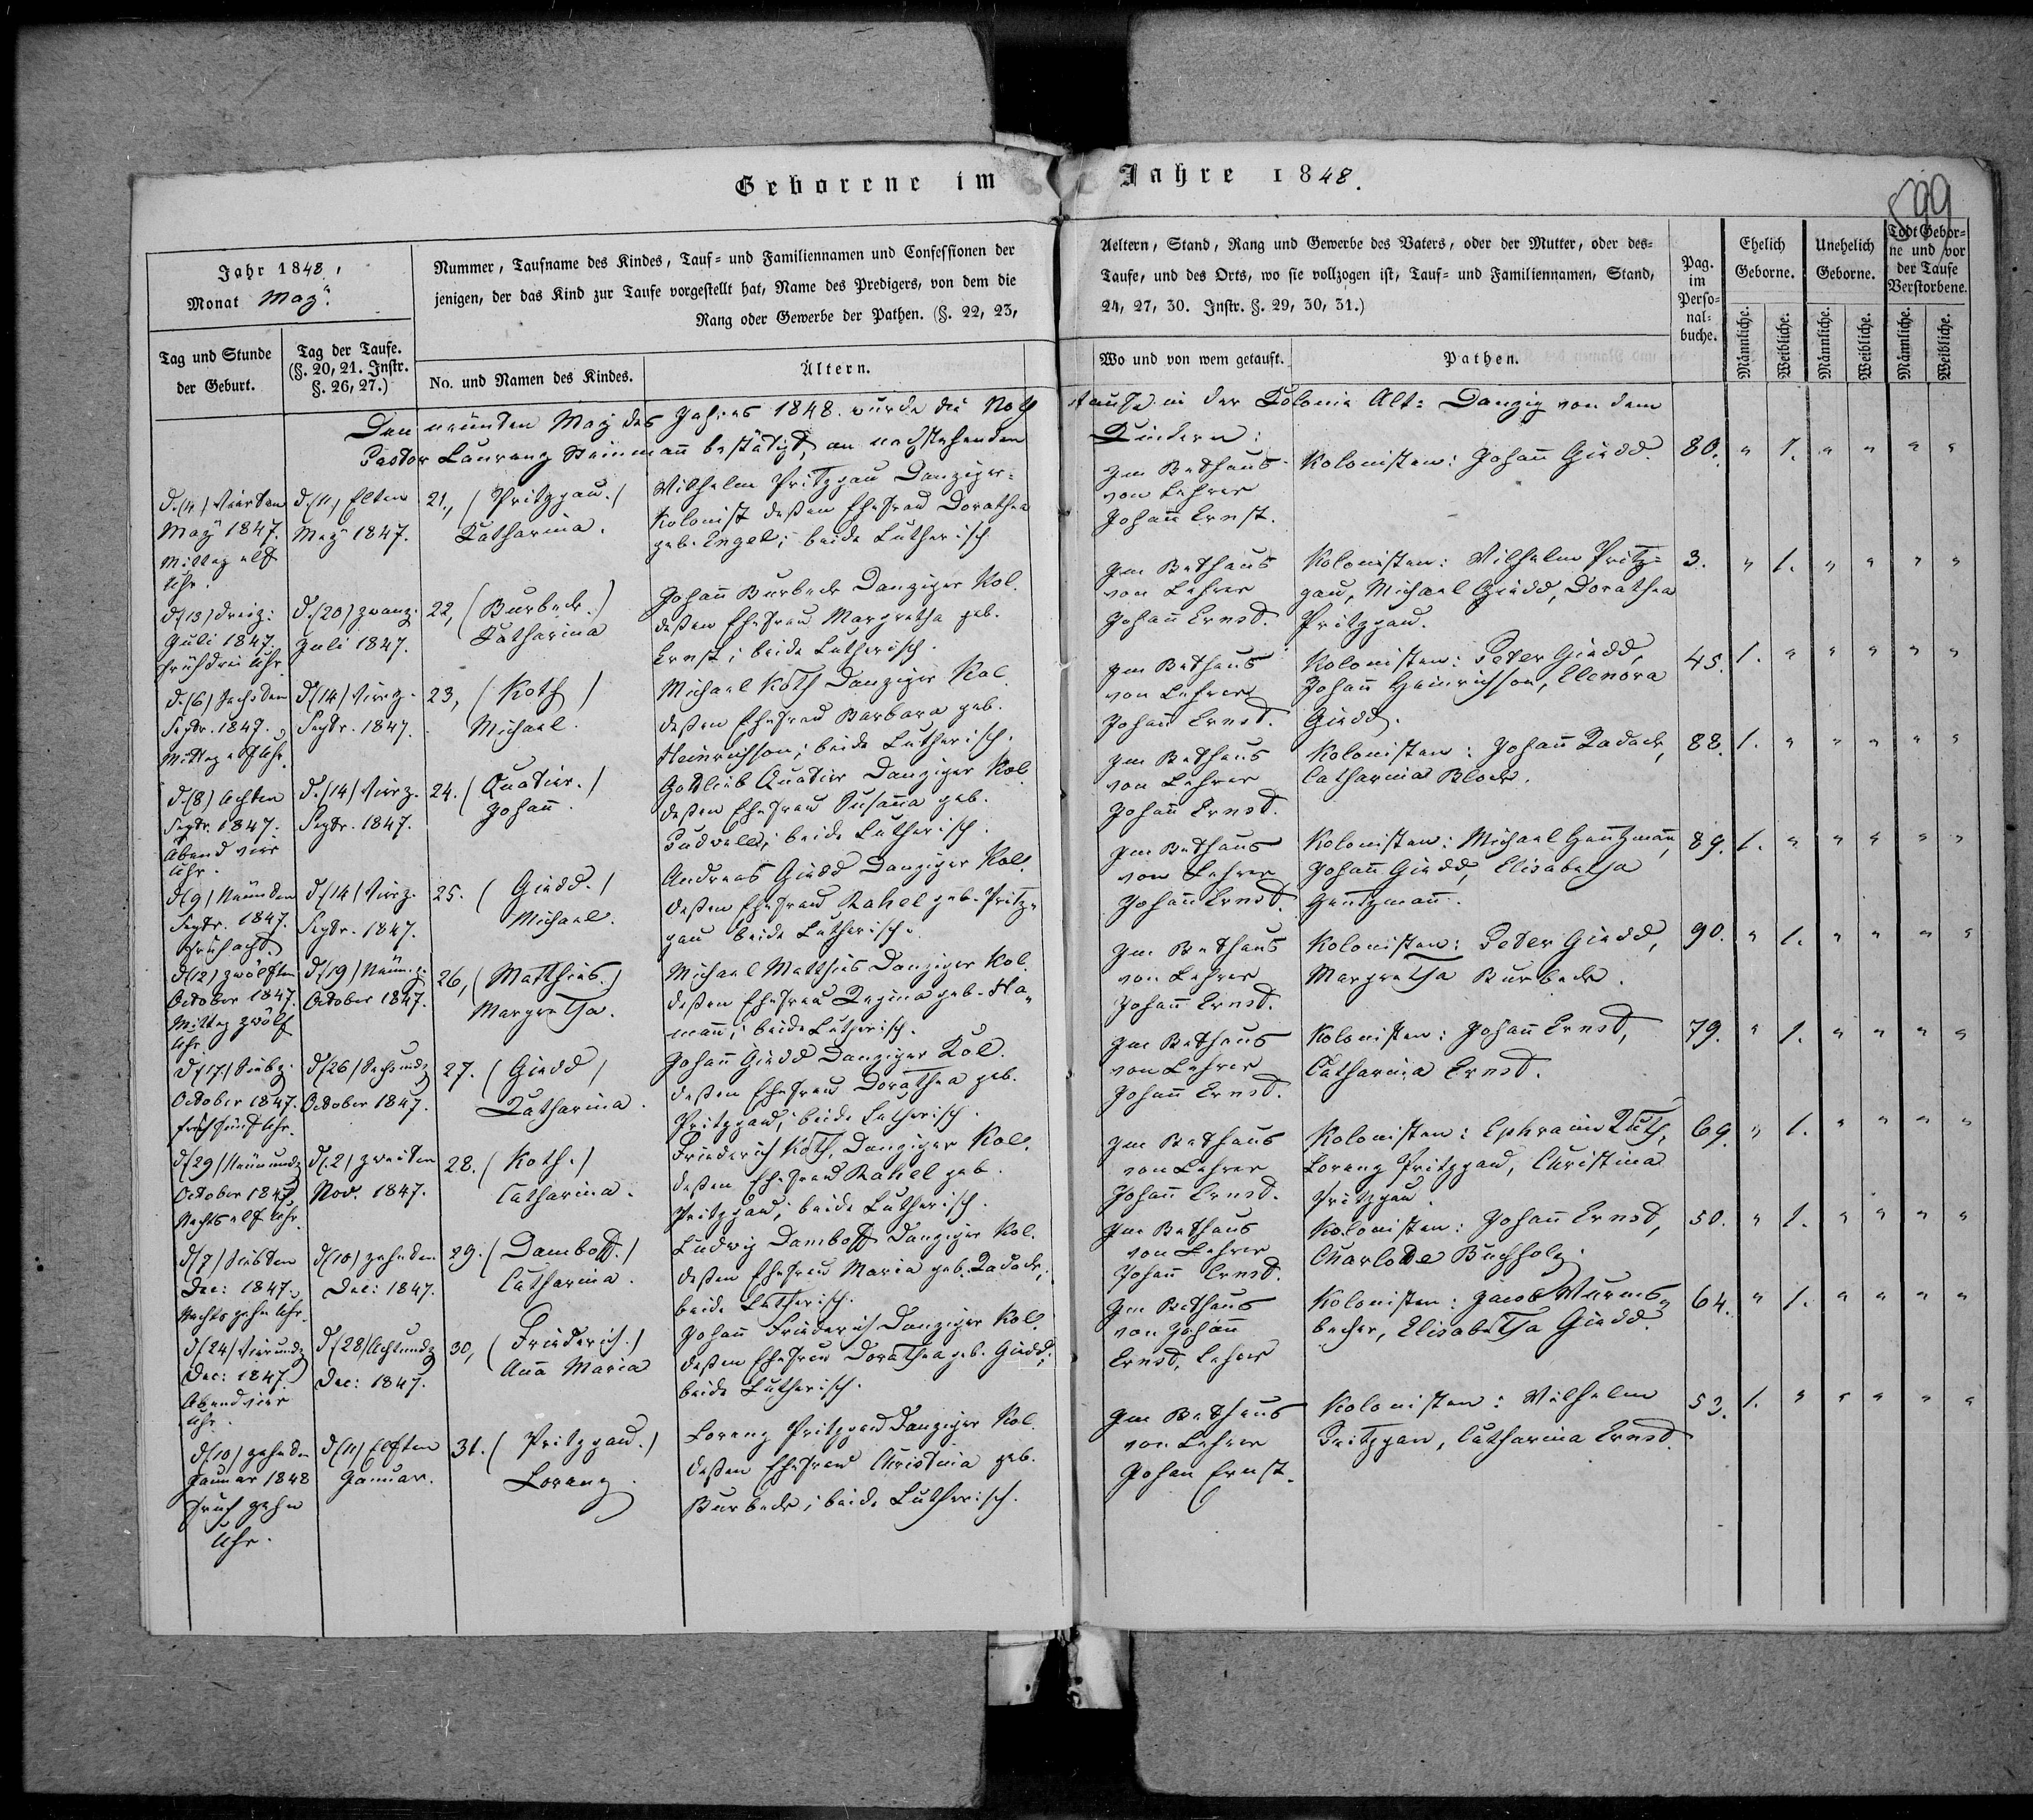 Geborene im Jahre 1848.
599
Jahr 1848,
Monat May.
Nummer, Taufname des Kindes, Tauf- und Familiennamen und Confessionen der
jenigen, der das Kind zur Taufe vorgestellt hat, Name des Predigers, von dem die
Rang oder Gewerbe der Pathen. (§. 22, 23,
Aeltern, Stand, Rang und Gewerbe des Vaters, oder der Mutter, oder des-
Taufe, und des Orts, wo sie vollzogen ist, Tauf- und Familiennamen, Stand,
24, 27, 30. Instr. §. 29, 30, 31.)
Pag.
im
Perso-
nal-
buche.
Ehelich
Geborne.
Unehelich
Geborne.
Todt Gebor-
ne und vor
der Taufe
Verstorbene.
Tag und Stunde
der Geburt.
Tag der Taufe.
(§. 20, 21. Instr.
§. 26, 27.)
No. und Namen des Kindes.
Ältern.
Wo und von wem getauft.
Pathen.
Männliche.
Weibliche.
Männliche.
Weibliche.
Männliche.
Weibliche.
Den neunten May des Jahres 1848. wurde die Noth
taufe in der Kolonie Alt-Danzig von dem
Pastor Laurenz Steinmañ bestätigt, an nachstehenden
Kindern:
d. (4) Vierten
May 1847.
Mittag elf
Uhr.
d. (11) Elten
May 1847.
21., (Pritzgau.)
Katharina.
Wilhelm Pritzgau Danziger-
Kolonist deßen Ehefrau Dorathea
geb. Engel; beide Lutherisch
Im Bethaus
von Lehrer
Johañ Ernst.
Kolonisten: Johañ Giedd.
80. " 1. " " " "
d. (13) dreiz:
Juli 1847.
früh drei Uhr.
d. (20) zwanz.
Juli 1847.
22, (Burbeck.)
Katharina
Johañ Burbeck Danziger Kol.
deßen Ehefrau Margretha geb.
Ernst; beide Lutherisch.
Im Bethaus
von Lehrer
Johañ Ernst.
Kolonisten: Wilhelm Pritz-
gau, Michael Giedd, Dorathea
Pritzgau.
3. " 1. " " " "
d. (6) Sechsten
Septr. 1847.
Mittag elf Uhr.
d. (14) Vierz.
Septr. 1847.
23, (Koth)
Michael.
Michael Koth Danziger Kol.
deßen Ehefrau Barbara geb.
Heinrichson; beide Lutherisch.
Im Bethaus
von Lehrer
Johañ Ernst.
Kolonisten: Peter Giedd,
Johañ Heinrichson, Elenora
Giedd.
45. 1. " " " " "
d. (8) Achten
Septr. 1847.
Abend vier
Uhr.
d. (14) Vierz.
Septr. 1847.
24. (Quatier.)
Johañ.
Gottlieb Quatier Danziger Kol.
deßen Ehefrau Susaña geb.
beide Lutherisch.
Im Bethaus
von Lehrer
Johañ Ernst.
Kolonisten: Johañ Radack,
Catharina Block.
88. 1. " " " " "
d. (9) Neunten
Septr. 1847.
früh acht
d. (14) Vierz.
Septr. 1847.
25. (Giedd.)
Michael.
Andreas Giedd Danziger Kol.
deßen Ehefrau Rahel geb. Pritz-
gau beide Lutherisch.
Im Bethaus
von Lehrer
Johañ Ernst.
Kolonisten: Michael Hentzmañ,
Johañ Giedd, Elisabetha
Hentzmañ.
89. 1. " " " " "
d. (12) zwölften
October 1847.
Mittag zwölf
Uhr
d. (19) Neunz.
October 1847.
26, (Matthies.)
Margretha.
Michael Matthies Danziger Kol.
deßen Ehefrau Regina geb. Ha-
mañ; beide Lutherisch.
Im Bethaus
von Lehrer
Johañ Ernst.
Kolonisten: Peter Giedd,
Margretha Burbeck.
90. " 1. " " " "
d. (17) Siebz.
October 1847.
früh fünf Uhr.
d. (26) Sechsundz
October 1847.
27. (Giedd)
Katharina.
Johañ Giedd Danziger Kol.
deßen Ehefrau Dorathea geb.
Pritzgau; beide Lutherisch.
Im Bethaus
von Lehrer
Johañ Ernst.
Kolonisten: Johañ Ernst,
Catharina Ernst.
79. " 1. " " " "
d. (29) Neunundz
October 1847.
Nachts elf Uhr.
d. (2) zweiten
Nov. 1847.
28. (Koth.)
Catharina.
Friederich Koth, Danziger Kol.
deßen Ehefrau Rahel geb.
Pritzgau; beide Lutherisch.
Im Bethaus
von Lehrer
Johañ Ernst.
Kolonisten: Ephraim Ruth,
Lorenz Pritzgau, Christina
Pritzgau.
69. " 1. " " " "
d. (7) Siebten
Dec: 1847.
Nachts zehn Uhr.
d. (10) zehnten
Dec: 1847.
29. (Damboff.)
Catharina.
Ludwig Damboff Danziger Kol.
deßen Ehefrau Maria geb. Radack;
beide Lutherisch.
Im Bethaus
von Lehrer
Johañ Ernst.
Kolonisten: Johañ Ernst,
Charlotte Buchholz.
50. " 1. " " " "
d. (24) Vierundz
Dec: 1847.
Abend vier
Uhr.
d. (28) Achtundz
Dec: 1847.
30, (Friederich.)
Aña Maria
Johañ Friederich Danziger Kol.
deßen Ehefrau Dorathea geb. Giedd;
beide Lutherisch.
Im Bethaus
von Johañ
Ernst, Lehrer
Kolonisten: Jacob Wurms-
becher, Elisabetha Giedd.
64. " 1. " " " "
d. (10) zehnten
Januar 1848
früh zehn
Uhr.
d. (11) Elften
Januar.
31. (Pritzgau.)
Lorenz.
Lorenz Pritzgau Danziger Kol.
deßen Ehefrau Christina geb.
Burbeck; beide Lutherisch.
Im Bethaus
von Lehrer
Johan Ernst.
Kolonisten: Wilhelm
Pritzgau, Catharina Ernst.
53. 1. " " " " "